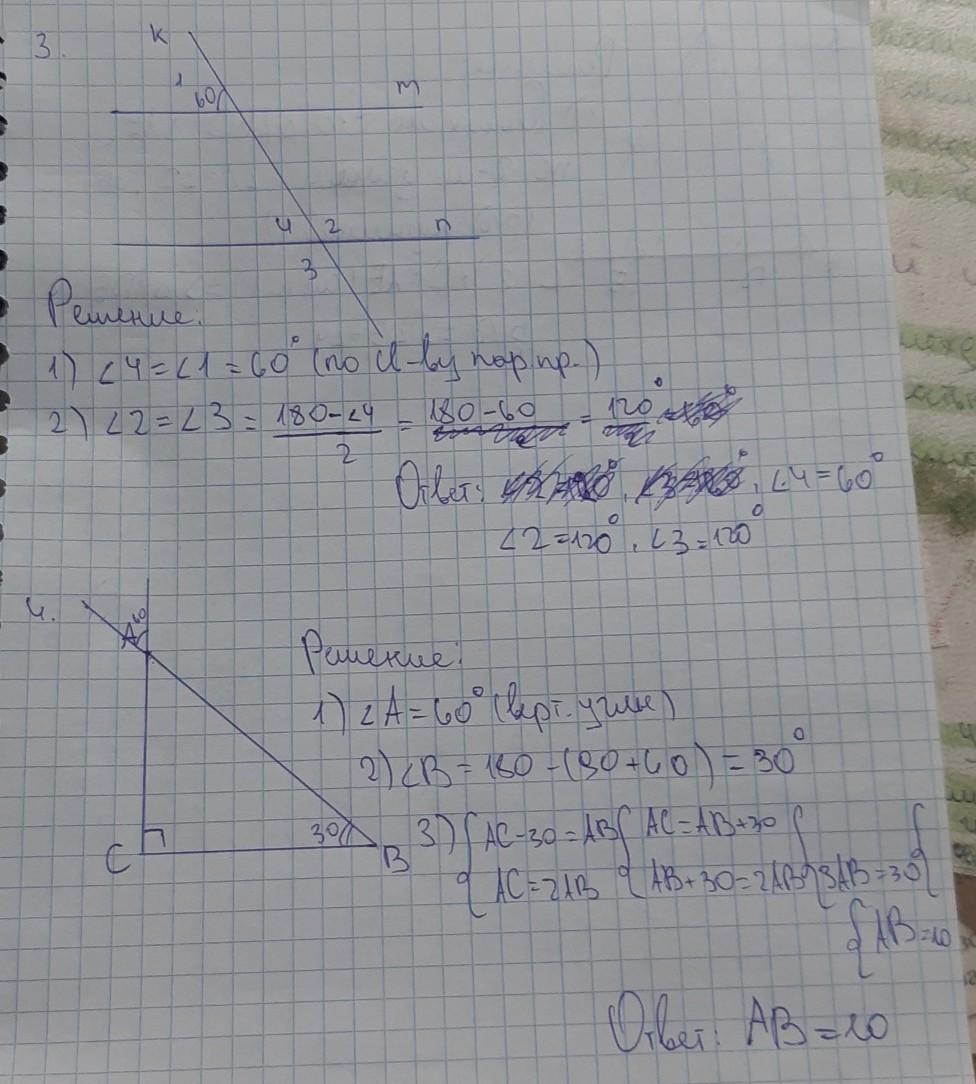 3.
K
1
60
m
4 2 n
3
Решение:
1) ∠4 = ∠1 = 60° (по св-ву пар.пр.)
2) ∠2 = ∠3 = 180-∠4 / 2 = 180-60 = 120°
Ответ: , ∠4 = 60°
∠2 = 120°, ∠3 = 120°
4.
60
A
Решение:
1) ∠A = 60° (верт. углы)
2) ∠B = 180 - (90+60) = 30°
C
30
B
3) { AC-30 = AB { AC = AB+30 { {
AC = 2AB AB+30 = 2AB 3AB = 30
{ AB = 10
Ответ: AB = 10